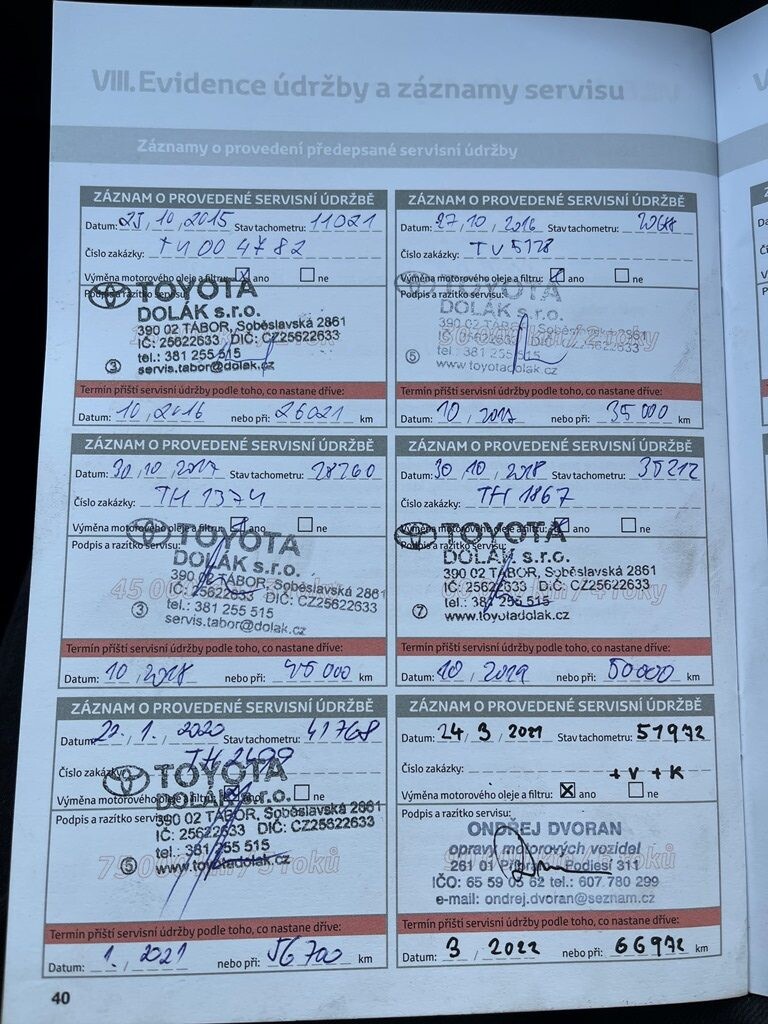 VIII. Evidence údržby a záznamy servisu
Záznamy o provedení předepsané servisní údržby
ZÁZNAM O PROVEDENÉ SERVISNÍ ÚDRŽBĚ
Datum: 23, 10, 2015 Stav tachometru: 11021
Číslo zakázky: TU004782
Výměna motorového oleje a filtru: ☒ ano ☐ ne
Podpis a razítko servisu:
TOYOTA
DOLÁK s.r.o.
390 02 TÁBOR, Soběslavská 2861
IČ: 25622633 DIČ: CZ25622633
tel.: 381 255 515
③ servis.tabor@dolak.cz
Termín příští servisní údržby podle toho, co nastane dříve:
Datum: 10, 2016 nebo při: 26021 km
ZÁZNAM O PROVEDENÉ SERVISNÍ ÚDRŽBĚ
Datum: 27, 10, 2016 Stav tachometru:
Číslo zakázky: TV5178
Výměna motorového oleje a filtru: ☒ ano ☐ ne
Podpis a razítko servisu:
TOYOTA
DOLÁK s.r.o.
390 02 TÁBOR, Soběslavská 2861
IČ: 25622633 DIČ: CZ25622633
tel.: 381 255 515
⑤ www.toyotadolak.cz
Termín příští servisní údržby podle toho, co nastane dříve:
Datum: 10, 2017 nebo při: 35000 km
ZÁZNAM O PROVEDENÉ SERVISNÍ ÚDRŽBĚ
Datum: 30, 10, 2017 Stav tachometru: 28760
Číslo zakázky: TH 1374
Výměna motorového oleje a filtru: ☒ ano ☐ ne
Podpis a razítko servisu:
TOYOTA
DOLÁK s.r.o.
390 02 TÁBOR, Soběslavská 2861
IČ: 25622633 DIČ: CZ25622633
③ tel.: 381 255 515
servis.tabor@dolak.cz
Termín příští servisní údržby podle toho, co nastane dříve:
Datum: 10, 2018 nebo při: 45000 km
ZÁZNAM O PROVEDENÉ SERVISNÍ ÚDRŽBĚ
Datum: 30, 10, 2018 Stav tachometru: 35212
Číslo zakázky: TH 1867
Výměna motorového oleje a filtru: ☒ ano ☐ ne
Podpis a razítko servisu:
TOYOTA
DOLÁK s.r.o.
390 02 TÁBOR, Soběslavská 2861
IČ: 25622633 DIČ: CZ25622633
⑦ tel.: 381 255 515
www.toyotadolak.cz
Termín příští servisní údržby podle toho, co nastane dříve:
Datum: 10, 2019 nebo při: 50000 km
ZÁZNAM O PROVEDENÉ SERVISNÍ ÚDRŽBĚ
Datum: 22. 1. 2020 Stav tachometru: 41768
Číslo zakázky: TH 2499
Výměna motorového oleje a filtru: ☒ ano ☐ ne
Podpis a razítko servisu:
TOYOTA
DOLÁK s.r.o.
390 02 TÁBOR, Soběslavská 2861
IČ: 25622633 DIČ: CZ25622633
tel.: 381 255 515
⑤ www.toyotadolak.cz
Termín příští servisní údržby podle toho, co nastane dříve:
Datum: 1, 2021 nebo při: 56700 km
ZÁZNAM O PROVEDENÉ SERVISNÍ ÚDRŽBĚ
Datum: 24, 3, 2021 Stav tachometru: 51972
Číslo zakázky: +V+K
Výměna motorového oleje a filtru: ☒ ano ☐ ne
Podpis a razítko servisu:
ONDŘEJ DVORAN
opravy motorových vozidel
261 01 Příbram, Podlesí 311
IČO: 65 59 05 62 tel.: 607 780 299
e-mail: ondrej.dvoran@seznam.cz
Termín příští servisní údržby podle toho, co nastane dříve:
Datum: 3, 2022 nebo při: 66972 km
40